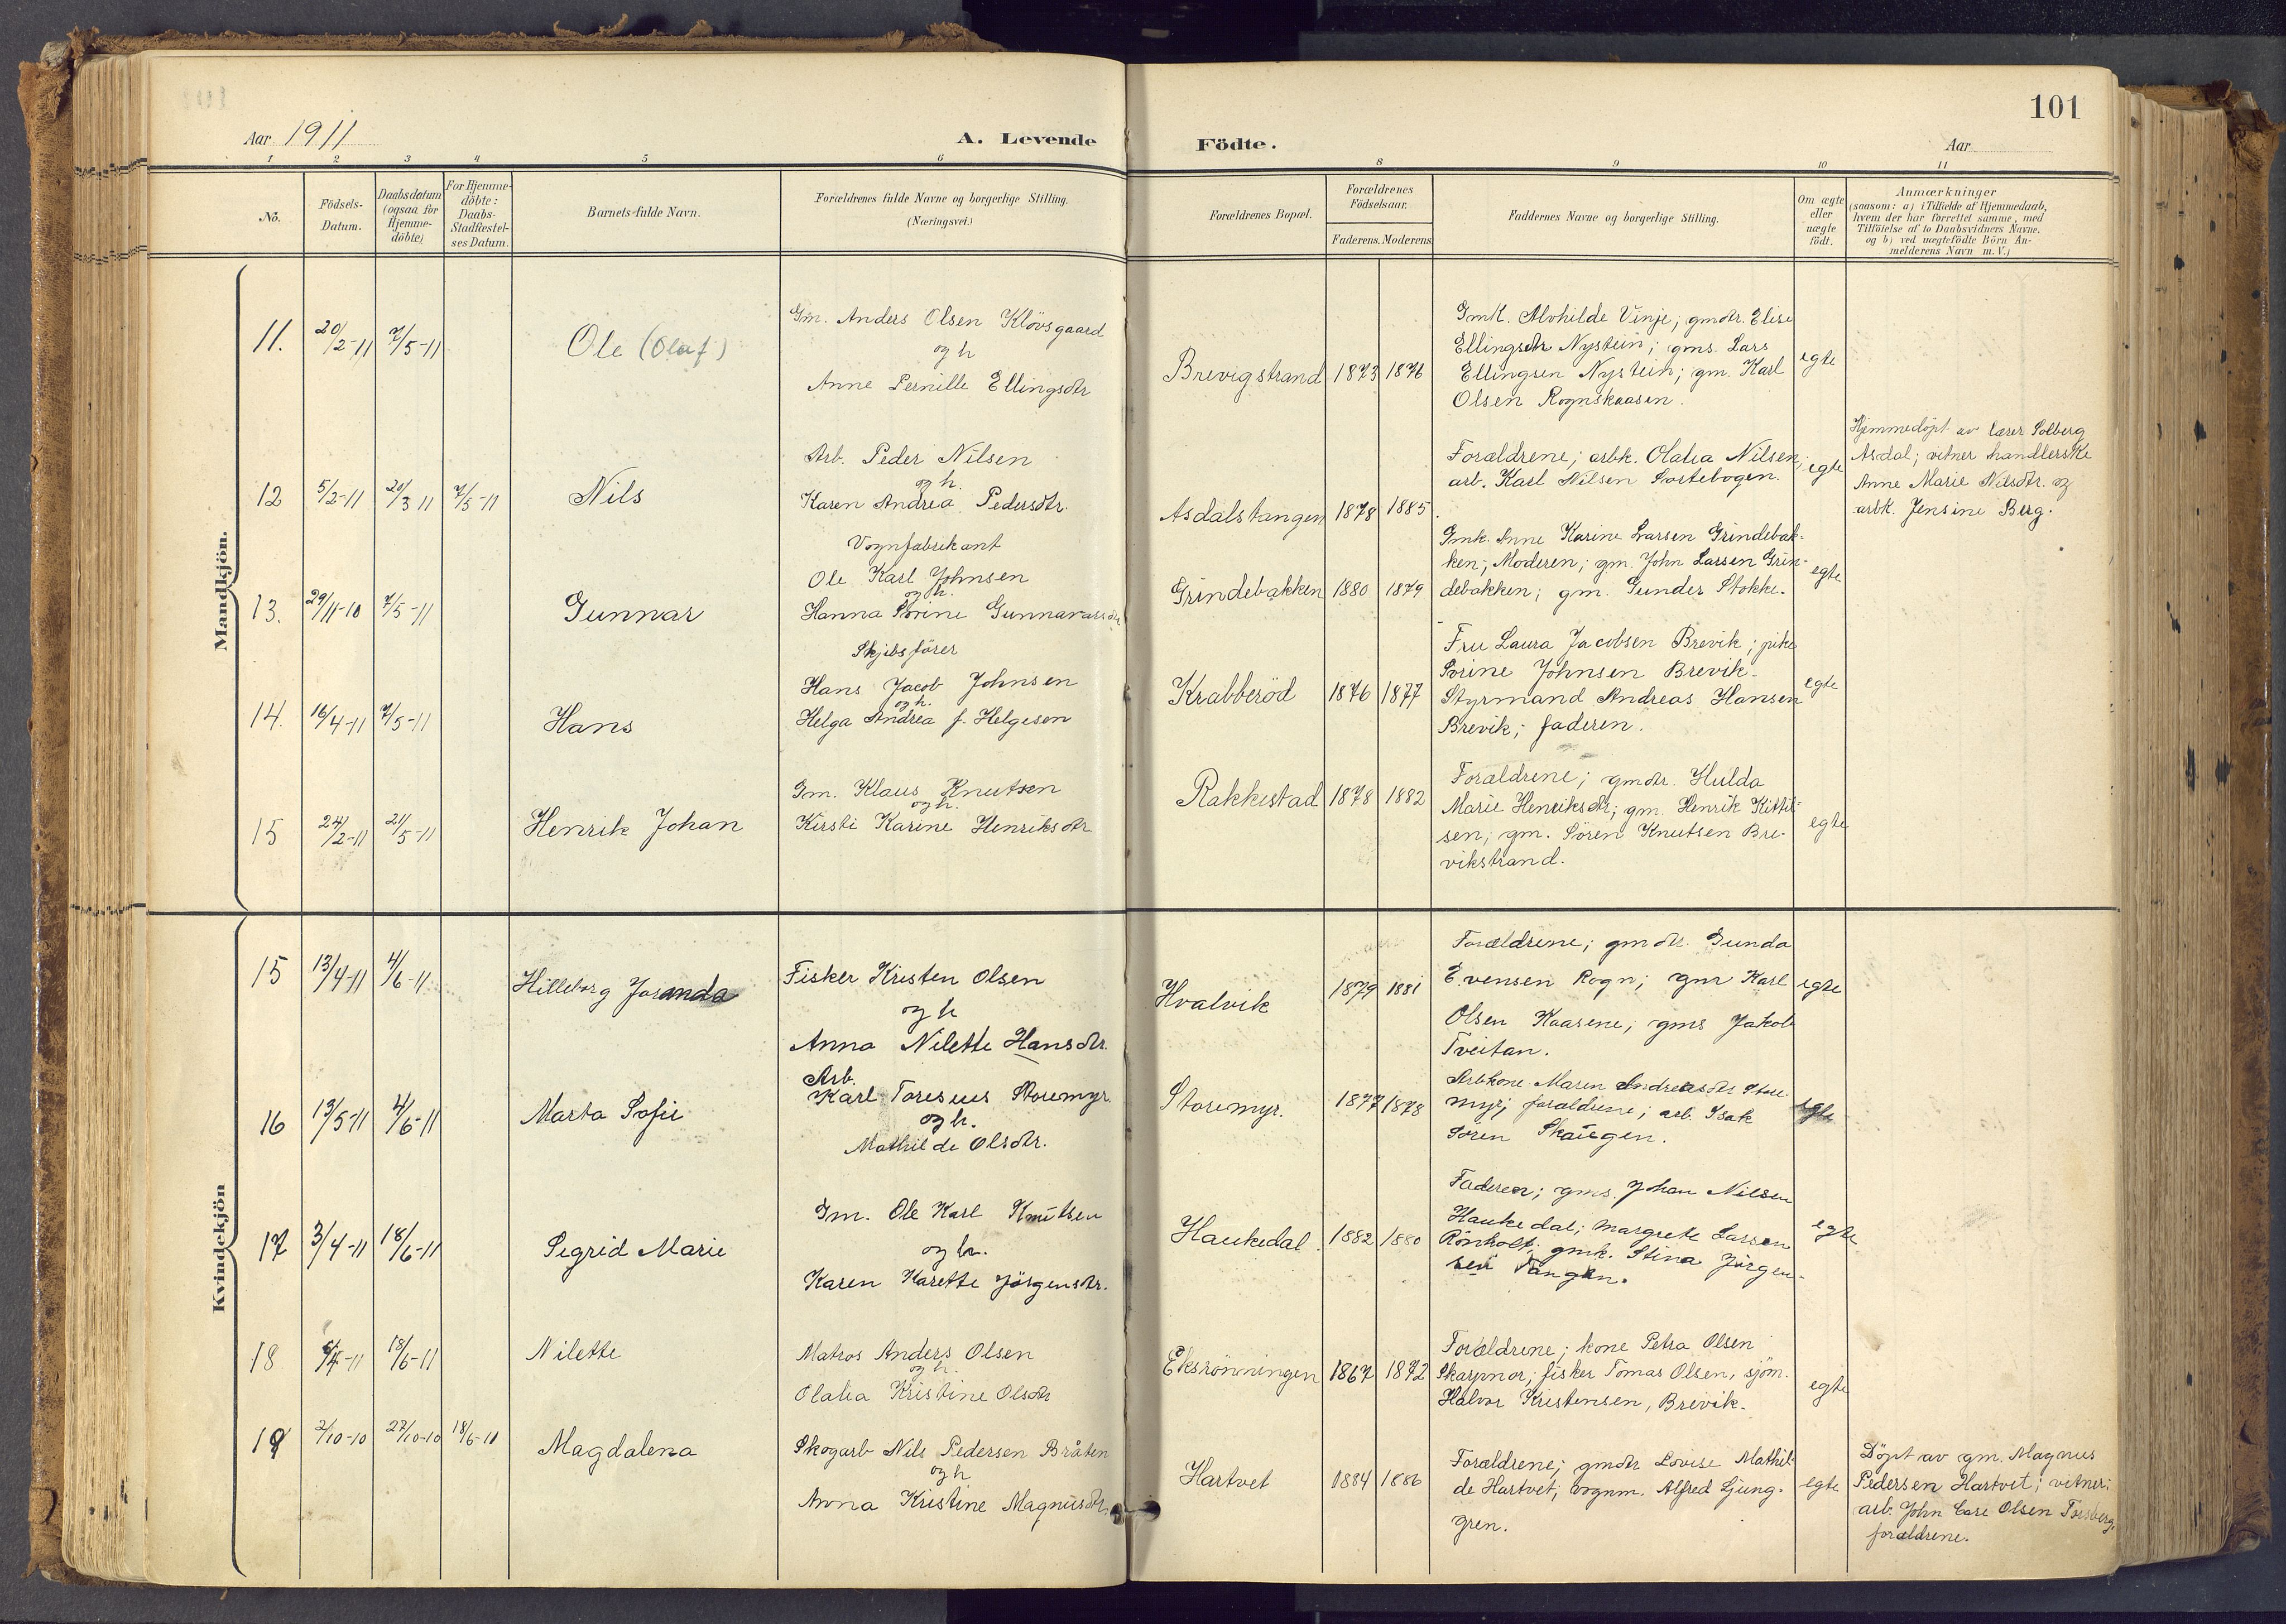 101
Aar 1911
A. Levende
Födte.
Aar
1 2 3 4 5 6 8 9 10 11
No.
Födsels-
Datum.
Daabsdatum
(ogsaa for
Hjemme-
döbte)
For Hjemme-
döbte:
Daabs-
Stadfæstel-
ses Datum.
Barnets fulde Navn.
Forældrenes fulde Navne og borgerlige Stilling.
(Næringsvei.)
Forældrenes Bopæl.
Forældrenes
Födselsaar.
Faderens. Moderens.
Faddernes Navne og borgerlige Stilling.
Om ægte
eller
uægte
födt.
Anmærkninger
(saasom: a) i Tilfælde af Hjemmedaab,
hvem der har forrettet samme, med
Tilföielse af to Daabsvidners Navne.
og b) ved uægtefödte Börn An-
melderens Navn m. V.)
Mandkjön.
11.
20/2-11
7/5-11
Ole (Olaf)
Gm. Anders Olsen Klövsgaard
og h
Anne Pernille Ellingsdtr
Brevigstrand
1873
1876
Gmk. Alvhilde Vinje; gmdtr. Elise
Ellingsdtr Nystein; gms. Lars
Ellingsen Nystein; gm. Karl
Olsen Rognskaasen.
egte
12
5/2-11
20/3 11
7/5-11
Nils
Arb. Peder Nilsen
og h.
Karen Andrea Pedersdtr.
Asdalstangen
1878
1885
Forældrene; arbk. Olalia Nilsen;
arb. Karl Nilsen Sortebogen.
egte
Hjemmedöpt av lærer Solberg
Asdal; vitner handlerske
Anne Marie Nilsdtr. og
arbk. Jensine Berg.
13.
29/11-10
7/5-11
Gunnar
Vognfabrikant
Ole Karl Johnsen
og h.
Hanna Sorine Gunnarsdtr
Grindebakken
1880
1879
Gmk. Anne Karine Larsen Grindebak-
ken; Moderen; gm. John Larsen Grin-
debakken; gm. Gunder Stokke.
egte
14.
16/4-11
7/5-11
Hans
Skjibsförer
Hans Jacob Johnsen
og h.
Helga Andrea f. Helgesen
Krabberöd
1876
1877
Fru Laura Jacobsen Brevik; pike
Sorine Johnsen Brevik.
Styrmand Andreas Hansen
Brevik; faderen.
egte
15
24/2-11
21/5-11
Henrik Johan
Gm. Klaus Knutsen
og h.
Kirsti Karine Henriksdtr
Rakkestad
1878
1882
Forældrene; gmdtr. Hulda
Marie Henriksdtr; gm. Henrik Kittil-
sen; gm. Sören Knutsen Bre-
vikstrand.
egte
Kvindekjön
15
13/4-11
4/6-11
Hilleborg Joranda
Fisker Kristen Olsen
og h
Anna Nilette Hansdtr.
Hvalvik
1879
1881
Forældrene; gmdtr. Gunda
Evensen Rogn; gm Karl
Olsen Kaasene; gms Jakob
Tveitan.
egte
16
13/5-11
4/6-11
Marta Sofie
Arb.
Karl Toresius Storemyr.
og h.
Mathilde Olsdtr.
Storemyr.
1877
1878
Arbkone Maren Andreasdtr Store
myr; forældrene; arb. Isak
Sören Skaugen.
egte
17
3/4-11
18/6-11
Sigrid Marie
Gm. Ole Karl Knutsen
og h.
Karen Karette Jörgensdtr.
Haukedal.
1882
1880
Faderen; gms. Johan Nilsen
Haukedal; Margrete Larsen
Rönholt; gmk. Stina Jörgen-
sen Tangen.
egte
18
/4-11
18/6-11
Nilette
Matros Anders Olsen
og h.
Olalia Kristine Olsdtr
Eksrönningen
1867
1872
Forældrene; kone Petra Olsen
Skarpnor; fisker Tomas Olsen, sjöm.
Halvor Kristensen, Brevik.
egte
19
2/10-10
27/10-10
18/6-11
Magdalena
Skogarb Nils Pedersen Bråten
og h
Anna Kristine Magnusdtr.
Hartvet
1884
1886
Forældrene; gmdtr Lovise Mathil-
de Hartvet; vognm. Alfred Ljung-
gren.
egte
Döpt av gm. Magnus
Pedersen Hartvet; vitner:
arb. John Care Olsen Torsberg,
forældrene.